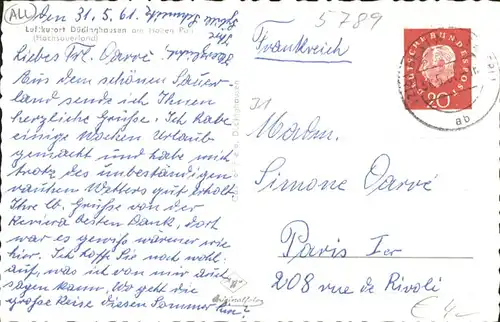 ALL
5789
den 31.5.61.
Luftkurort Düdinghausen am Hohen Pön
(Hochsauerland)
Liebes Frl. Carré,
Aus dem schönen Sauer-
land sende ich Ihnen
herzliche Grüße. Ich habe
einige Wochen Urlaub
gemacht und habe mich
trotz des unbeständigen
rauhen Wetters gut erholt
Ihre lb. Grüße von der
Riviera besten Dank, dort
war es gewiß wärmer wie
hier. Ich hoffe Sie noch wohl-
auf, was ich von mir auch
sagen kann. Wo geht die
große Reise diesen Sommer hin?
Frankreich
DEUTSCHE BUNDESPOST
20
ab
Madm.
Simone Carré
Paris Ier
208 rue de Rivoli
€ 4,-